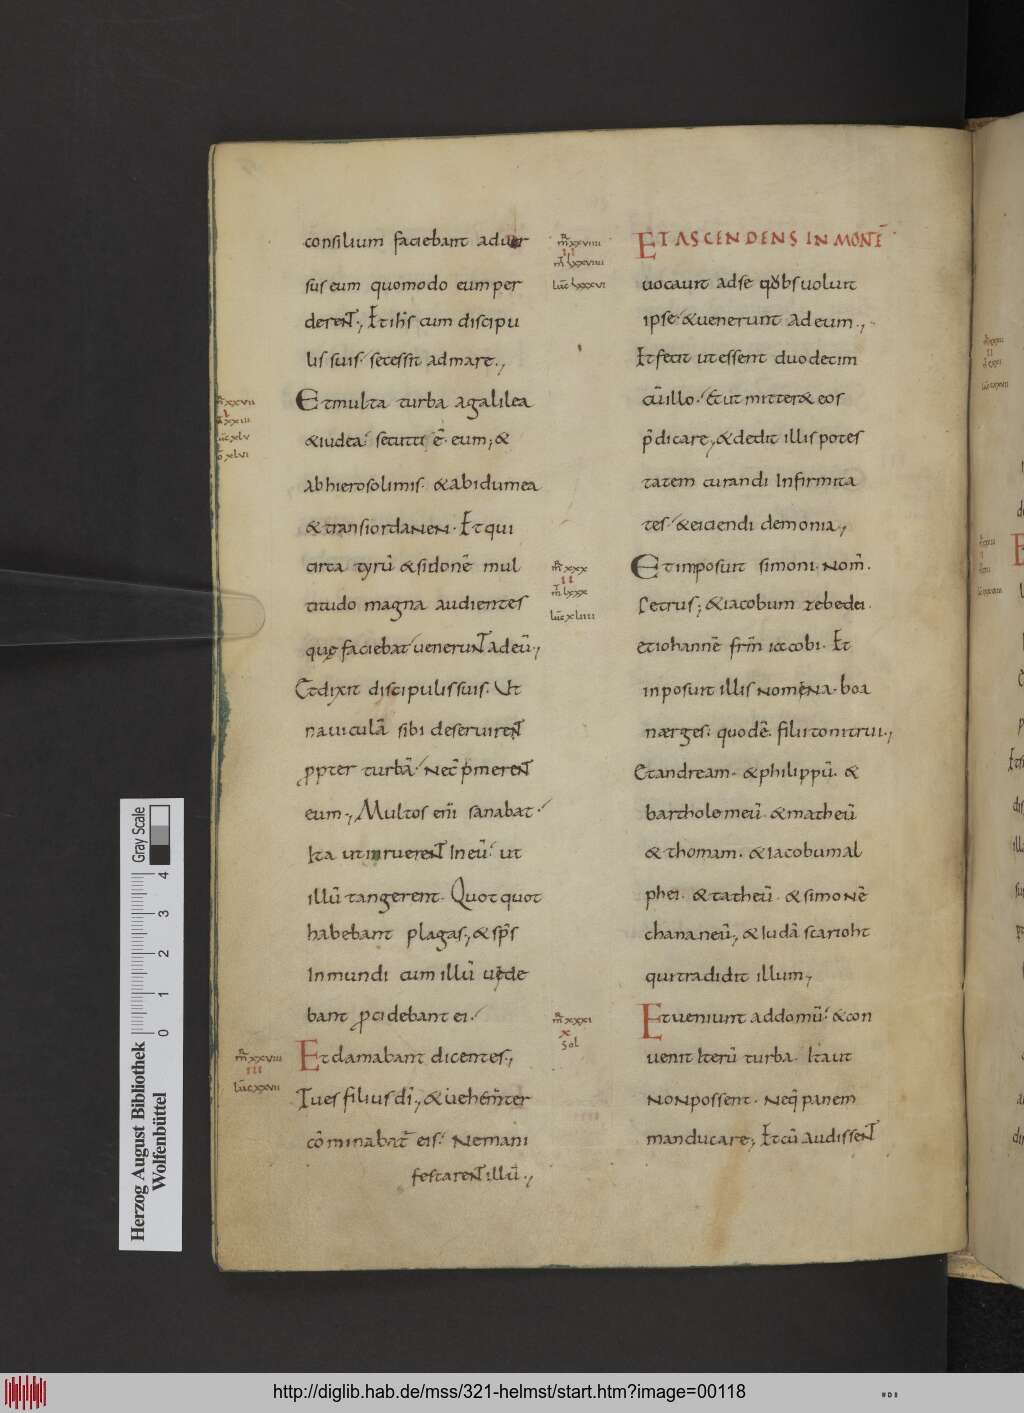 consilium faciebant aduer
sus eum quomodo eum per
derent., Et ihs̄ cum discipu
lis suis· secessit ad mare.,
Et multa turba a galilea
& iudea· secutti ē· eum; &
ab hierosolimis· & ab idumea
& trans iordanen· Et qui
circa tyrū & sidonē mul
titudo magna audientes
quę faciebat uenerunt ad eū.,
Et dixit discipulis suis· Ut
nauiculā sibi deseruirent
ꝓpter turbā· nec c̄p̄merent
eum., Multos em̄ sanabat·
Ita ut inruerent In eū· ut
illū tangerent· Quotquot
habebant plagas., & sp̄s
Inmundi cum illū uide
bant ꝓcidebant ei·
Et clamabant dicentes.,
Tu es filius dī., & uehem̄ter
cōminabat̄ eis· Ne mani
festarent illū.,
m̄r xxvii
m̄t xxiii
luc̄ xlv
iō xlvi
m̄r xxviii
iii
luc̄ xxvii
m̄r xxviiii
ii
m̄t lxxviiii
luc̄ lxxxvi
ET ASCENDENS IN MONTĒ
uocauit ad se quos uoluit
ipse· & uenerunt ad eum.,
Et fecit ut essent duodecim
cū illo· Et ut mitter& eos
p̄dicare., & dedit illis potes
tatem curandi Infirmita
tes· & eiciendi demonia.,
Et imposuit simoni· nom̄·
Petrus; & iacobum zebedei·
et iohannē frm̄ iacobi· Et
inposuit illis nomina· boa
nærges· quod ē· filii tonitrui.,
Et andream· & philippū· &
bartholomeū· & matheū
& thomam· & Iacobum al
phei· & tatheū· & simonē
chananeū., & Iudā scarioht
qui tradidit illum.,
m̄r xxx
ii
m̄t lxxx
luc̄ xliiii
Et ueniunt ad domū· & con
uenit Iterū turba· Ita ut
non possent· neq̄ panem
manducare; Et cū audissent
m̄r xxxi
x
sol
4
3
2
1
0
Gray Scale
Herzog August Bibliothek
Wolfenbüttel
http://diglib.hab.de/mss/321-helmst/start.htm?image=00118